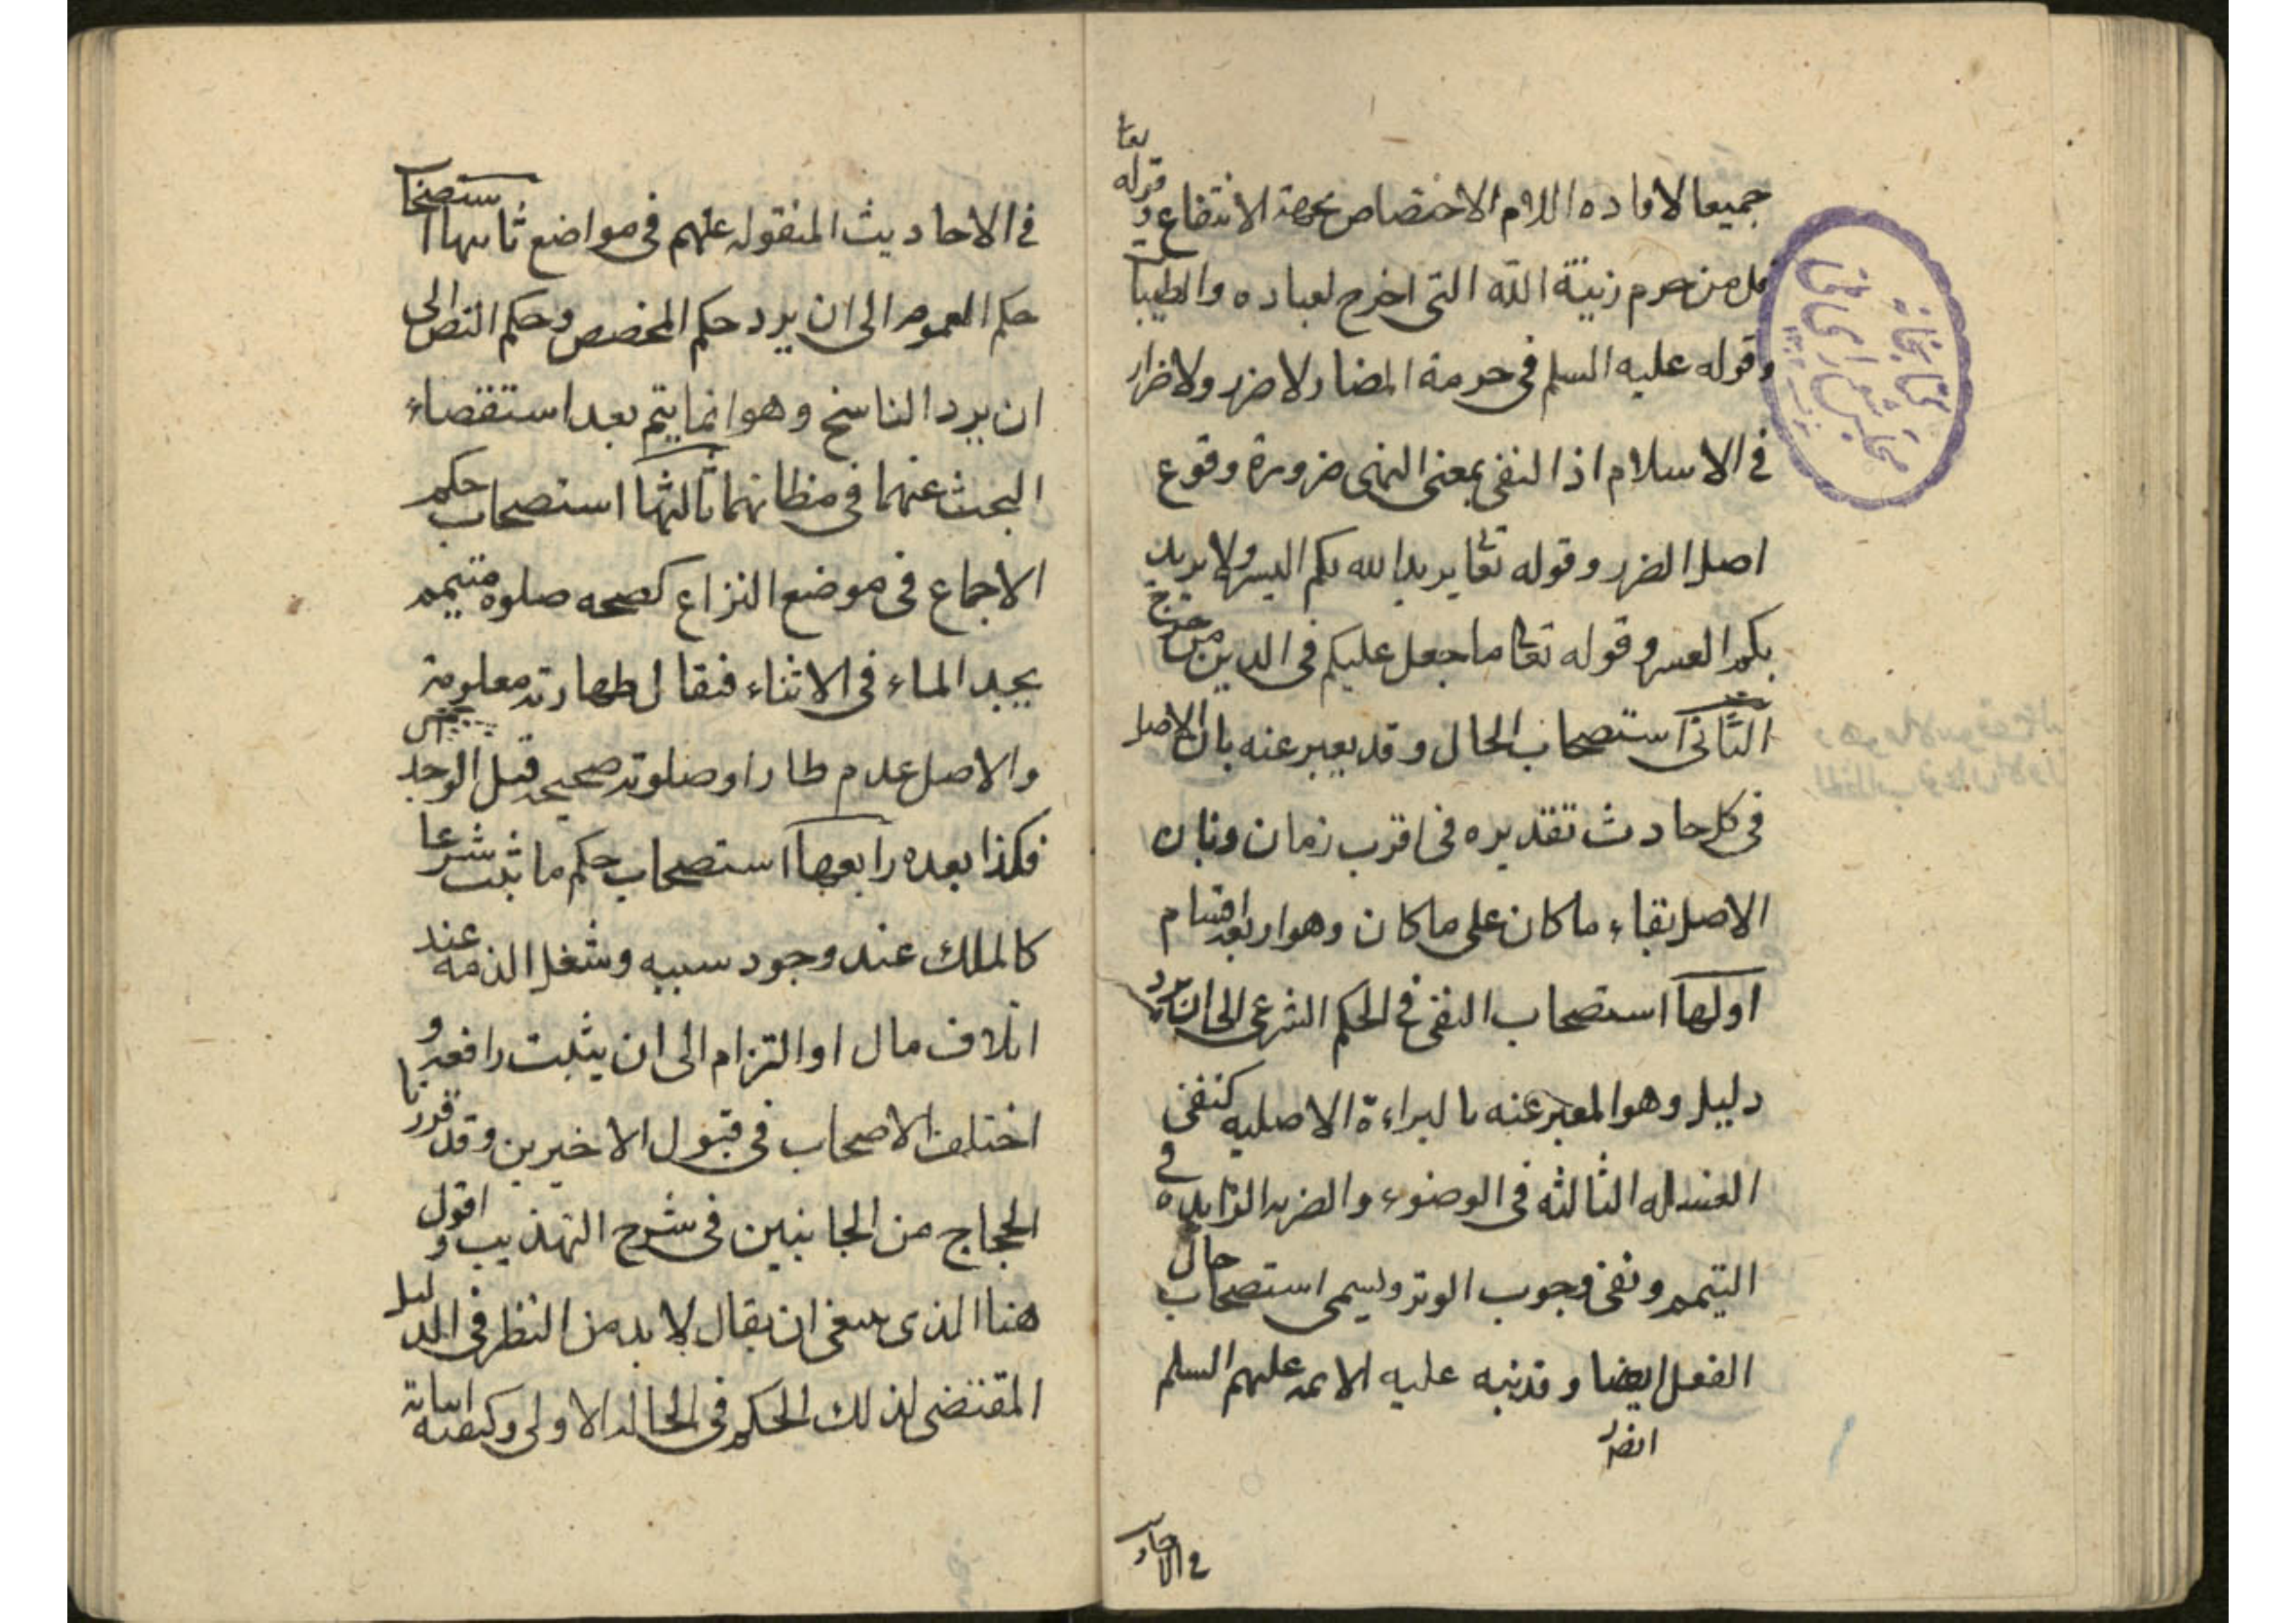 جميعا لافاده اللام الاختصاص بجهة الانتفاع وقوله تعا
قل من حرم زينة الله التى اخرج لعباده والطيبات
وقوله عليه السلم فى حرمة المضار لا ضرر ولا ضرار
فى الاسلام اذ النفى بمعنى النهى ضرورة وقوع
اصل الضرر وقوله تعا يريد الله بكم اليسر ولا يريد
بكم العسر وقوله تعا ما جعل عليكم فى الدين من حرج
الثانى استصحاب الحال وقد يعبر عنه بان الاصل
فى كل حادث تقديره فى اقرب زمان وبان
الاصل بقاء ما كان على ما كان وهو اربعة اقسام
اولها استصحاب النفى فى الحكم الشرعى الى ان يرد
دليل وهو المعبر عنه بالبراءة الاصليه كنفى
الغسله الثالثه فى الوضوء والضربه الزايده فى
التيمم ونفى وجوب الوتر ويسمى استصحاب حال
الفعل ايضا وقد نبه عليه الائمه عليهم السلم
فى الاحاد
فى الاحاديث المنقوله عنهم فى مواضع ثانيها استصحاب
حكم العموم الى ان يرد حكم المخصص وحكم النص الى
ان يرد الناسخ وهو انما يتم بعد استقصاء
البحث عنهما فى مظانهما ثالثها استصحاب حكم
الاجماع فى موضع النزاع كصحه صلوة متيمم
يجد الماء فى الاثناء فنقال طهارته معلومة
والاصل عدم طار او صلوته صحيحه قبل الوجد
فكذا بعده رابعها استصحاب حكم ما ثبت شرعا
كالملك عند وجود سببه وشغل الذمه عند
اتلاف مال او التزام الى ان يثبت رافعه و
اختلف الاصحاب فى قبول الاخيرين وقد قررنا
الحجاج من الجانبين فى شرح التهذيب واقول
هنا الذى ينبغى ان يقال لا بد من النظر فى الدليل
المقتضى لذلك الحكم فى الحاله الاولى وكيفية
كتابخانه
مجلس شورای ملی